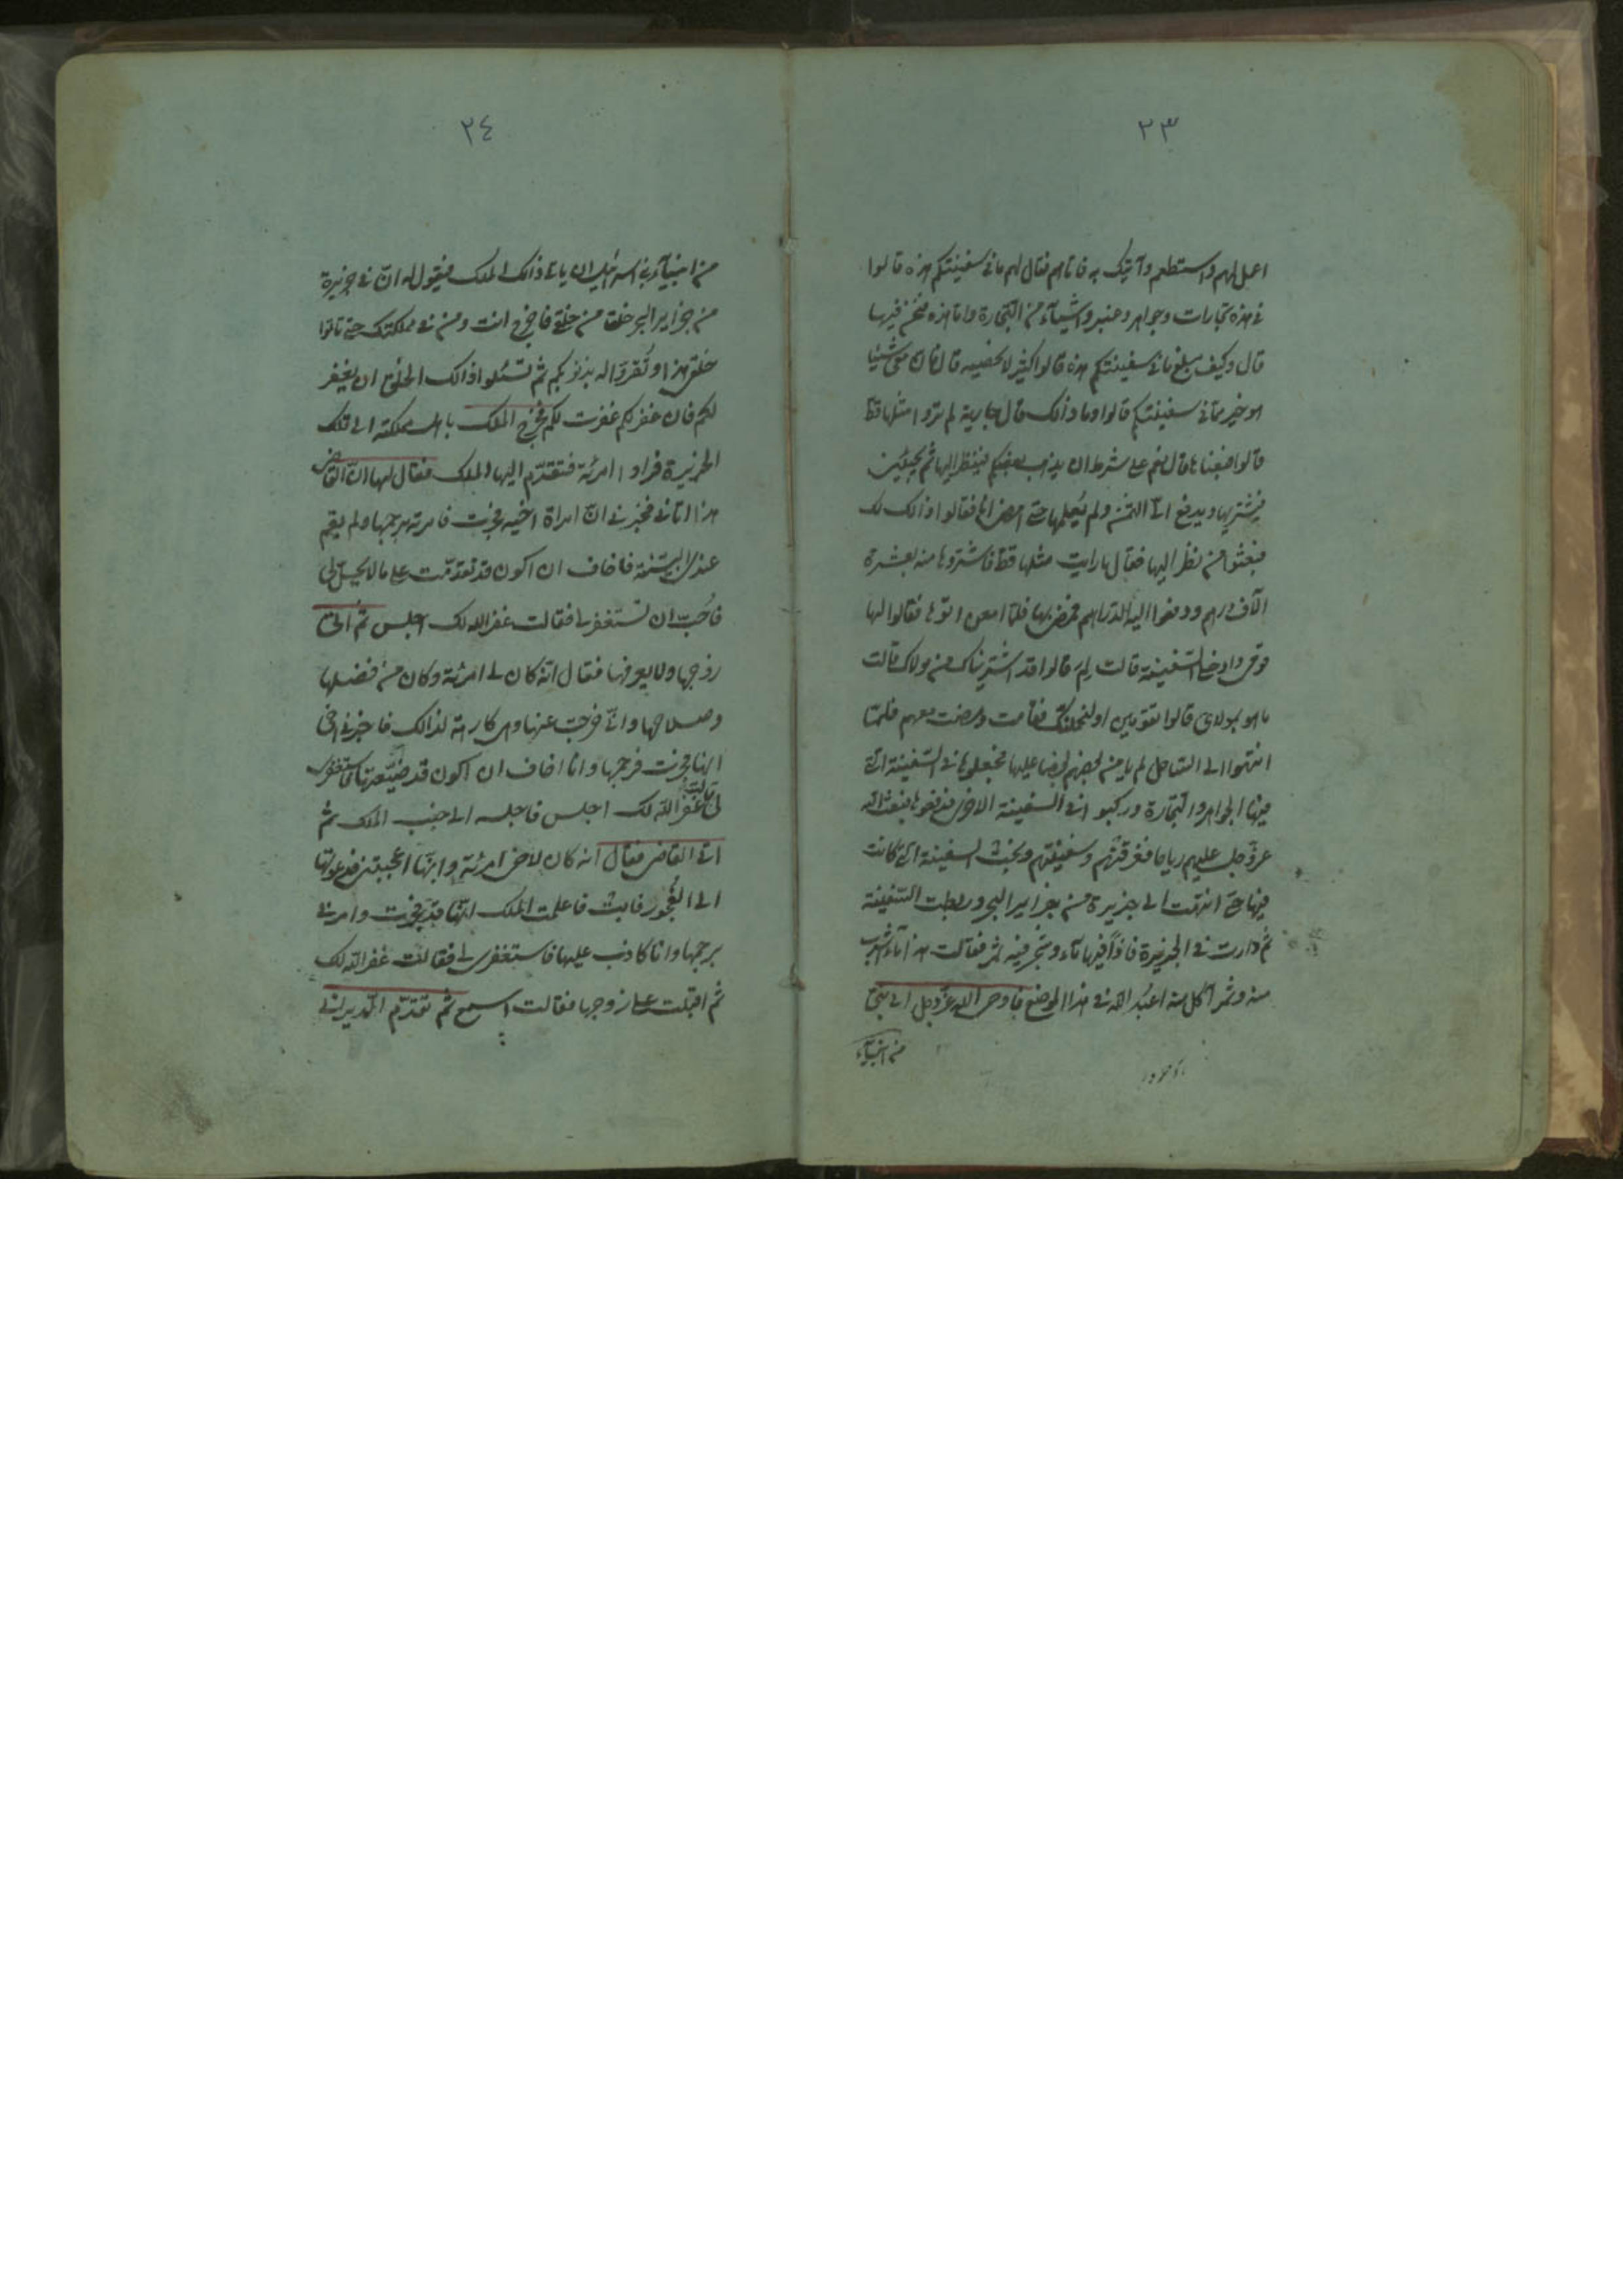 ٢٣
اعمل لهم واستطعم وآتيك به فاتاهم فقال لهم ما فى سفينتكم هذه قالوا
فى هذه تجارات وجواهر وعنبر واشيآء من التجارة واما هذه فنحن فيها
قال وكيف يبلغ ما فى سفينتكم هذه قالوا كثير لا نحصيه قال فان معى شيئا
هو خير مما فى سفينتكم قالوا وما ذالك قال جارية لم تروا مثلها قط
قالوا فبعناها قال نعم على شرط ان يذهب بعضكم فينظر اليها ثم يجيئنى
فيشتريها ويدفع الىّ الثمن ولم يُعلمها حتى امضى انا فقالوا ذالك لك
فبعثوا من نظر اليها فقال ما رايت مثلها قط فاشتروها منه بعشرة
الآف درهم ودفعوا اليه الدراهم فمضى بها فلمّا امعن اتوها فقالوا لها
قومى وادخلى السّفينة قالت لِمَ قالوا قد اشتريناك من مولاك قالت
ما هو بمولاى قالوا تقومين او لنحملنّك فقامت ومضت معهم فلمّا
انتهوا الى السّاحل لم يامن بعضهم بعضا عليها فجعلوها فى السّفينة التى
فيها الجواهر والتجارة وركبوا فى السفينة الاخرى فدفعوها فبعث الله
عزّوجل عليهم رياحا فغرقتهم وسفينتهم ونجت السفينة التى كانت
فيها حتى انتهت الى جزيرة من جزاير البحر وربطت السّفينة
ثم دارت فى الجزيرة فاذا فيها مآء وشجر فيه ثمر فقالت هذا مآء اشرب
منه وثمر آكل منه اعبُد اللّه فى هذا الموضع فاوحى الله عزّوجل الى نبىّ
من انبيآء
٢٤
من انبيآء بنى اسرائيل ان ياتى ذالك الملك فيقول له انّ فى جزيرة
من جزاير البحر خلقا من خلقى فاخرج انت ومن فى مملكتك حتى تاتوا
خلقى هذا وتُقرّوا له بذنوبكم ثم تسئلوا ذالك الخلق ان يغفر
لكم فان غفر لكم غفرت لكم فخرج الملك باهل مملكته الى تلك
الجزيرة فراوا امرئة فتقدّم اليها الملك فقال لها انّ القاضى
هذا اتانى فخبّرنى انّ امراة اخيه فجرت فامرته برجمها ولم يقم
عندى البيّنة فاخاف ان اكون قد تقدّمت على ما لا يحلّ لى
فاُحبّ ان تستغفرى فقالت غفر الله لك اجلس ثم اتى
زوجها ولا يعرفها فقال انه كان لى امرئة وكان من فضلها
وصلاحها وانى خرجت عنها وهى كارهة لذالك فاخبرنى اخى
انها فجرت فرجمها وانا اخاف ان اكون قد ضيّعتها فاستغفرى
لى قالت غفر اللّه لك اجلس فاجلسه الى جنب الملك ثم
اتى القاضى فقال انه كان لاخى امرئة وانّها اعجبتنى فدعوتها
الى الفجور فابت فاعلمت الملك انّها قد فجرت وامرنى
برجمها وانا كاذب عليها فاستغفرى لى فقالت غفر اللّه لك
ثم اقبلت على زوجها فقالت اسمع ثم تقدّم الديرانى